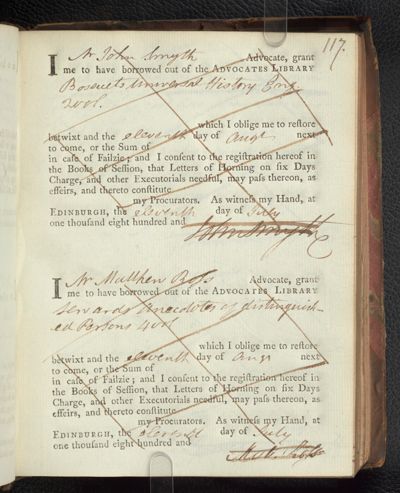 117.
I Mr John Smyth Advocate, grant
me to have borrowed out of the ADVOCATES LIBRARY
Bosuets Universal History Eng.
2 vol.
which I oblige me to reſtore
betwixt and the eleventh day of Augt next
to come, or the Sum of
in caſe of Failzie; and I conſent to the regiſtration hereof in
the Books of Seſſion, that Letters of Horning on ſix Days
Charge, and other Executorials needful, may paſs thereon, as
effeirs, and thereto conſtitute
my Procurators. As witneſs my Hand, at
EDINBURGH, the eleventh day of July
one thouſand eight hundred and
John Smyth
I Mr Matthew Roſs Advocate, grant
me to have borrowed out of the ADVOCATES LIBRARY
Sewards Anecdotes of distinguish-
ed Persons 4 vol
which I oblige me to reſtore
betwixt and the eleventh day of Augt next
to come, or the Sum of
in caſe of Failzie; and I conſent to the regiſtration hereof in
the Books of Seſſion, that Letters of Horning on ſix Days
Charge, and other Executorials needful, may paſs thereon, as
effeirs, and thereto conſtitute
my Procurators. As witneſs my Hand, at
EDINBURGH, the eleventh day of July
one thouſand eight hundred and